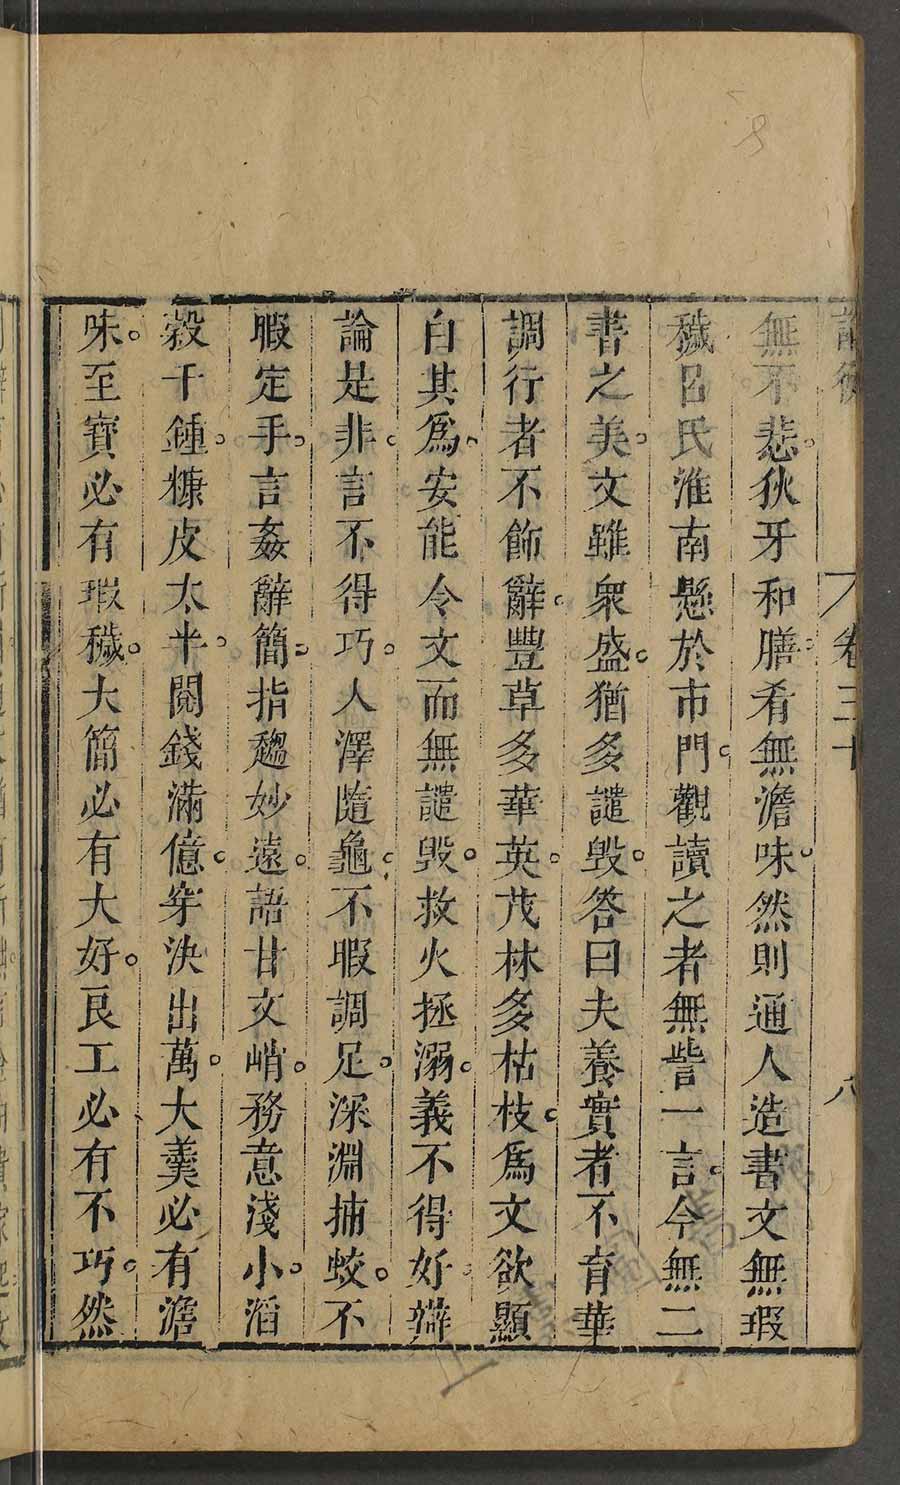 論衡 卷三十 八
無不悲。狄牙和膳。肴無澹味。然則通人造書文無瑕
穢呂氏淮南懸於市門。觀讀之者無訾一言。今無二
書之美。文雖衆盛。猶多譴毀。答曰夫養實者不育華
調行者不飾辭。豐草多華英。茂林多枯枝。爲文欲顯
白其爲。安能令文而無譴毀。救火拯溺。義不得好。辯
論是非。言不得巧。人澤隨龜。不暇調足。深淵捕蛟。不
暇定手。言姦辭簡。指趨妙遠。語甘文峭。務意淺小。滔
穀千鍾。糠皮太半。閱錢滿億。穿決出萬。大羹必有澹
味。至寶必有瑕穢。大簡必有大好。良工必有不巧。然